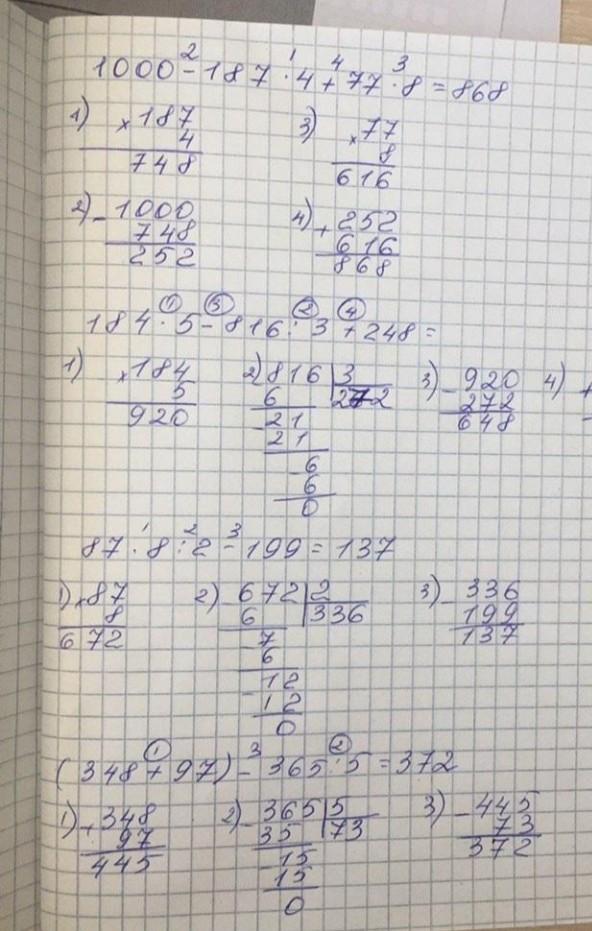 1000 - 187 · 4 + 77 · 8 = 868
2 1 4 3
1) × 187 3) × 77
4 8
748 616
2) - 1000 4) + 252
748 616
252 868
① ③ ② ④
184 · 5 - 816 : 3 + 248 =
1) × 184 2) 816 | 3 3) - 920 4) +
5 6 272 272
920 - 21 648
21
- 6
6
0
1 2 3
87 · 8 : 2 - 199 = 137
1) × 87 2) - 672 | 2 3) - 336
8 6 336 199
672 - 7 137
6
- 12
12
0
① 3 ②
(348 + 97) - 365 : 5 = 372
1) + 348 2) - 365 | 5 3) - 445
97 35 73 73
445 - 15 372
15
0